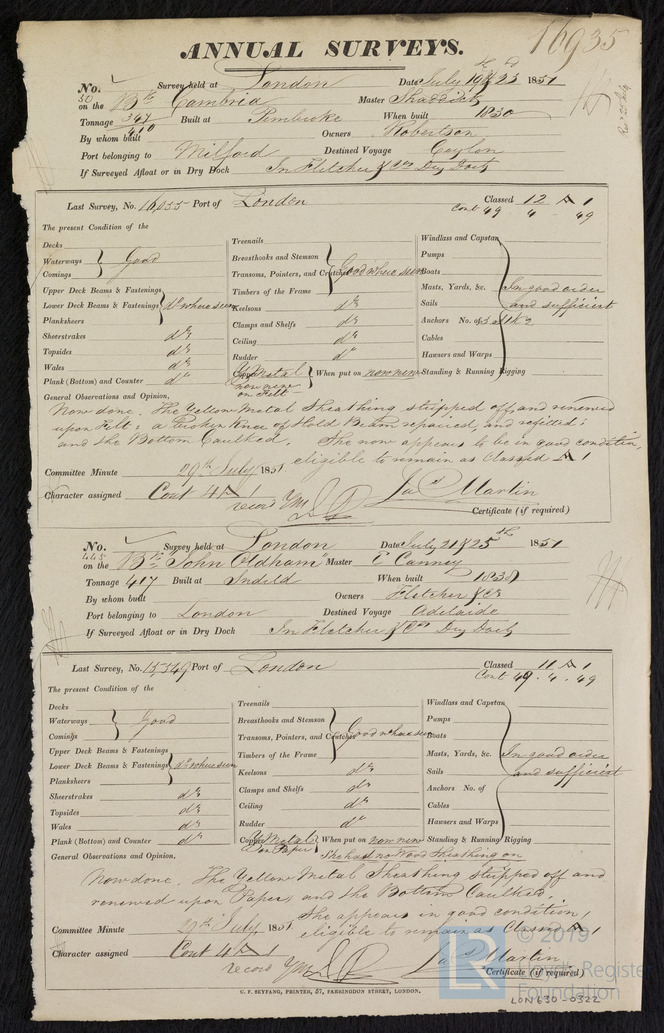 16935
ANNUAL SURVEYS.
No. 50 Survey held at London Date July 19 & 23 1851
on the Bk Cambria Master Shaddick
Tonnage 347 / 410 Built at Pembroke When built 1830
By whom built Owners Robertson
Port belonging to Milford Destined Voyage Ceylon
If Surveyed Afloat or in Dry Dock In Fletcher & Cos Dry Dock
Last Survey, No. 16,055 Port of London Classed 12 A 1
Cont 49 4 - 49
The present Condition of the
Decks
Waterways Good
Comings
Upper Deck Beams & Fastenings
Lower Deck Beams & Fastenings do where seen
Planksheers
Sheerstrakes do
Topsides do
Wales do
Plank (Bottom) and Counter do
Treenails
Breasthooks and Stemson
Transoms, Pointers, and Crutches Good where seen
Timbers of the Frame
Keelsons do
Clamps and Shelfs do
Ceiling do
Rudder do
Copper Y Metal When put on now new
now new
on Felt
Windlass and Capstan
Pumps
Boats
Masts, Yards, &c. In good order
Sails and sufficient
Anchors No. of
Cables
Hawsers and Warps
Standing & Running Rigging
General Observations and Opinion,
Now done. The Yellow Metal Sheathing stripped off, and renewed
upon Felt; a Broken Knee of Hold Beam repaired, and refitted;
and the Bottom Caulked. She now appears to be in good condition,
eligible to remain as Classed A 1
Committee Minute 29th July 1851
Character assigned Cont 4 A 1
record YM
Jas Martin
Certificate (if required)
No. 445 Survey held at London Date July 21 & 25th 1851
on the Bk "John Oldham" Master E Canney
Tonnage 417 Built at Indfld When built 1838
By whom built Owners Fletcher & Co
Port belonging to London Destined Voyage Adelaide
If Surveyed Afloat or in Dry Dock In Fletcher & Cos Dry Dock
Last Survey, No. 15,549 Port of London Classed 11 A 1
Cont 49 . 4 . 49
The present Condition of the
Decks
Waterways Good
Comings
Upper Deck Beams & Fastenings
Lower Deck Beams & Fastenings do where seen
Planksheers
Sheerstrakes do
Topsides do
Wales do
Plank (Bottom) and Counter do
Treenails
Breasthooks and Stemson
Transoms, Pointers, and Crutches Good where seen
Timbers of the Frame
Keelsons do
Clamps and Shelfs do
Ceiling do
Rudder do
Copper Y Metal When put on now new
on Paper
Windlass and Capstan
Pumps
Boats
Masts, Yards, &c. In good order
Sails and sufficient
Anchors No. of
Cables
Hawsers and Warps
Standing & Running Rigging
General Observations and Opinion, She has no Wood Sheathing on
Now done. The Yellow Metal Sheathing stripped off and
renewed upon Paper, and the Bottom Caulked.
She appears in good condition,
eligible to remain as Classed A 1
Committee Minute 29th July 1851
Character assigned Cont 4 A 1
record YM
Jas Martin
Certificate (if required)
G. F. SKYFANG, PRINTER, 57, FARRINGDON STREET, LONDON.
LR © 2019
Lloyd's Register
Foundation
LON630-0322